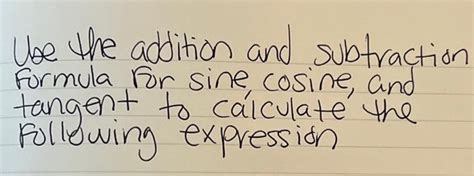 Use the addition and subtraction
Formula For sine, cosine, and
tangent to calculate the
Following expression